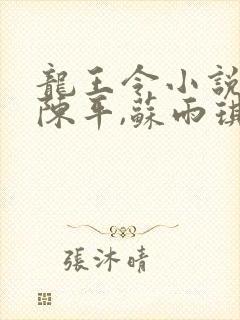 龍王令小說
陳平,蘇雨琪
張沐晴